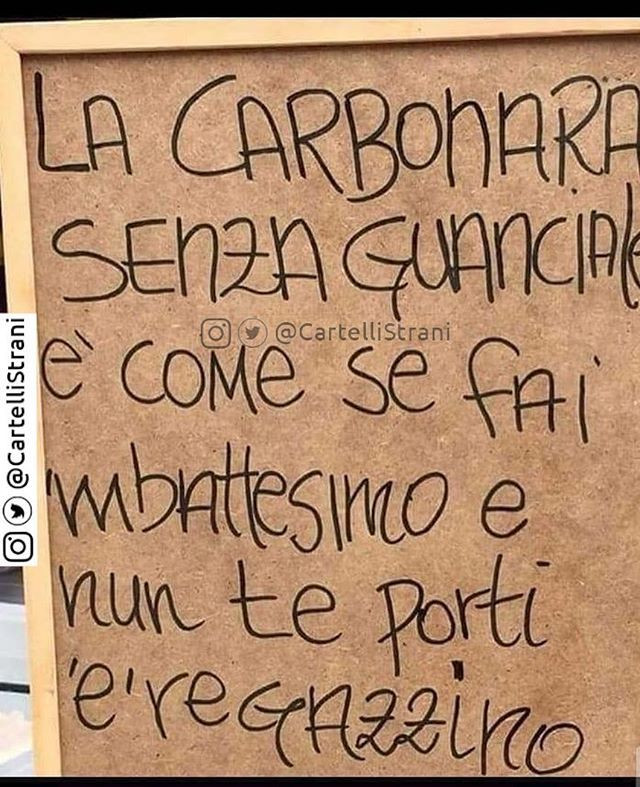 LA CARBONARA
SENZA GUANCIALE
@CartelliStrani
E' COME SE FAI
'MBATTESIMO E
NUN TE PORTI
'E'REGAZZINO
@CartelliStrani